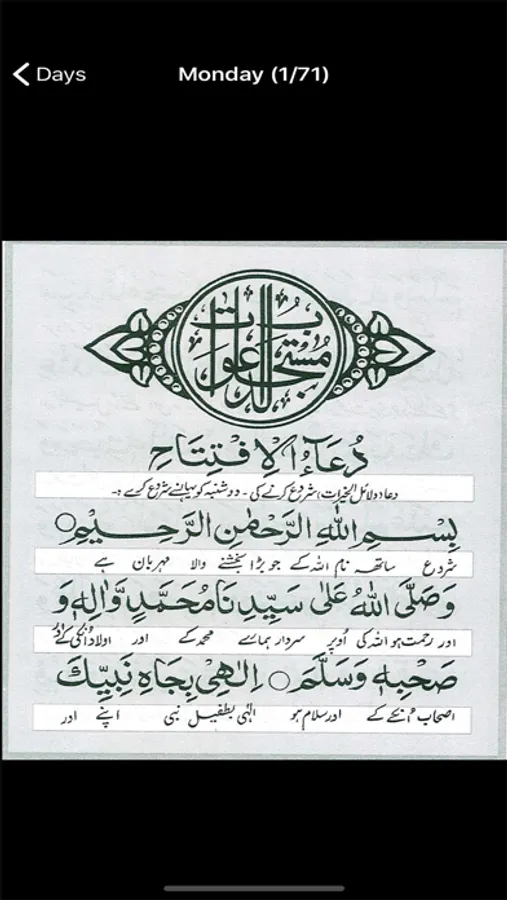 Days
Monday (1/71)
مستجاب الدعوات
دُعَآءُ الْاِفْتِتَاحِ
دعاء دلائل الخیرات شروع کرنے کی - دوشنبہ کو یہاں سے شروع کرے :-
بِسْمِ اللّٰهِ الرَّحْمٰنِ الرَّحِيْمِ ○
شروع ساتھ نام اللہ کے جو بڑا بخشنے والا مہربان ہے
وَصَلَّى اللّٰهُ عَلٰى سَيِّدِنَا مُحَمَّدٍ وَّاٰلِهٖ وَ
اور رحمت ہو اللہ کی اوپر سردار ہمارے محمد کے اور اولاد اُنکی کے اور
صَحْبِهٖ وَسَلَّمَ ○ اِلٰهِيْ بِجَاهِ نَبِيِّكَ
اصحاب اُنکے کے اور سلام ہو الٰہی بطفیل نبی اپنے اور